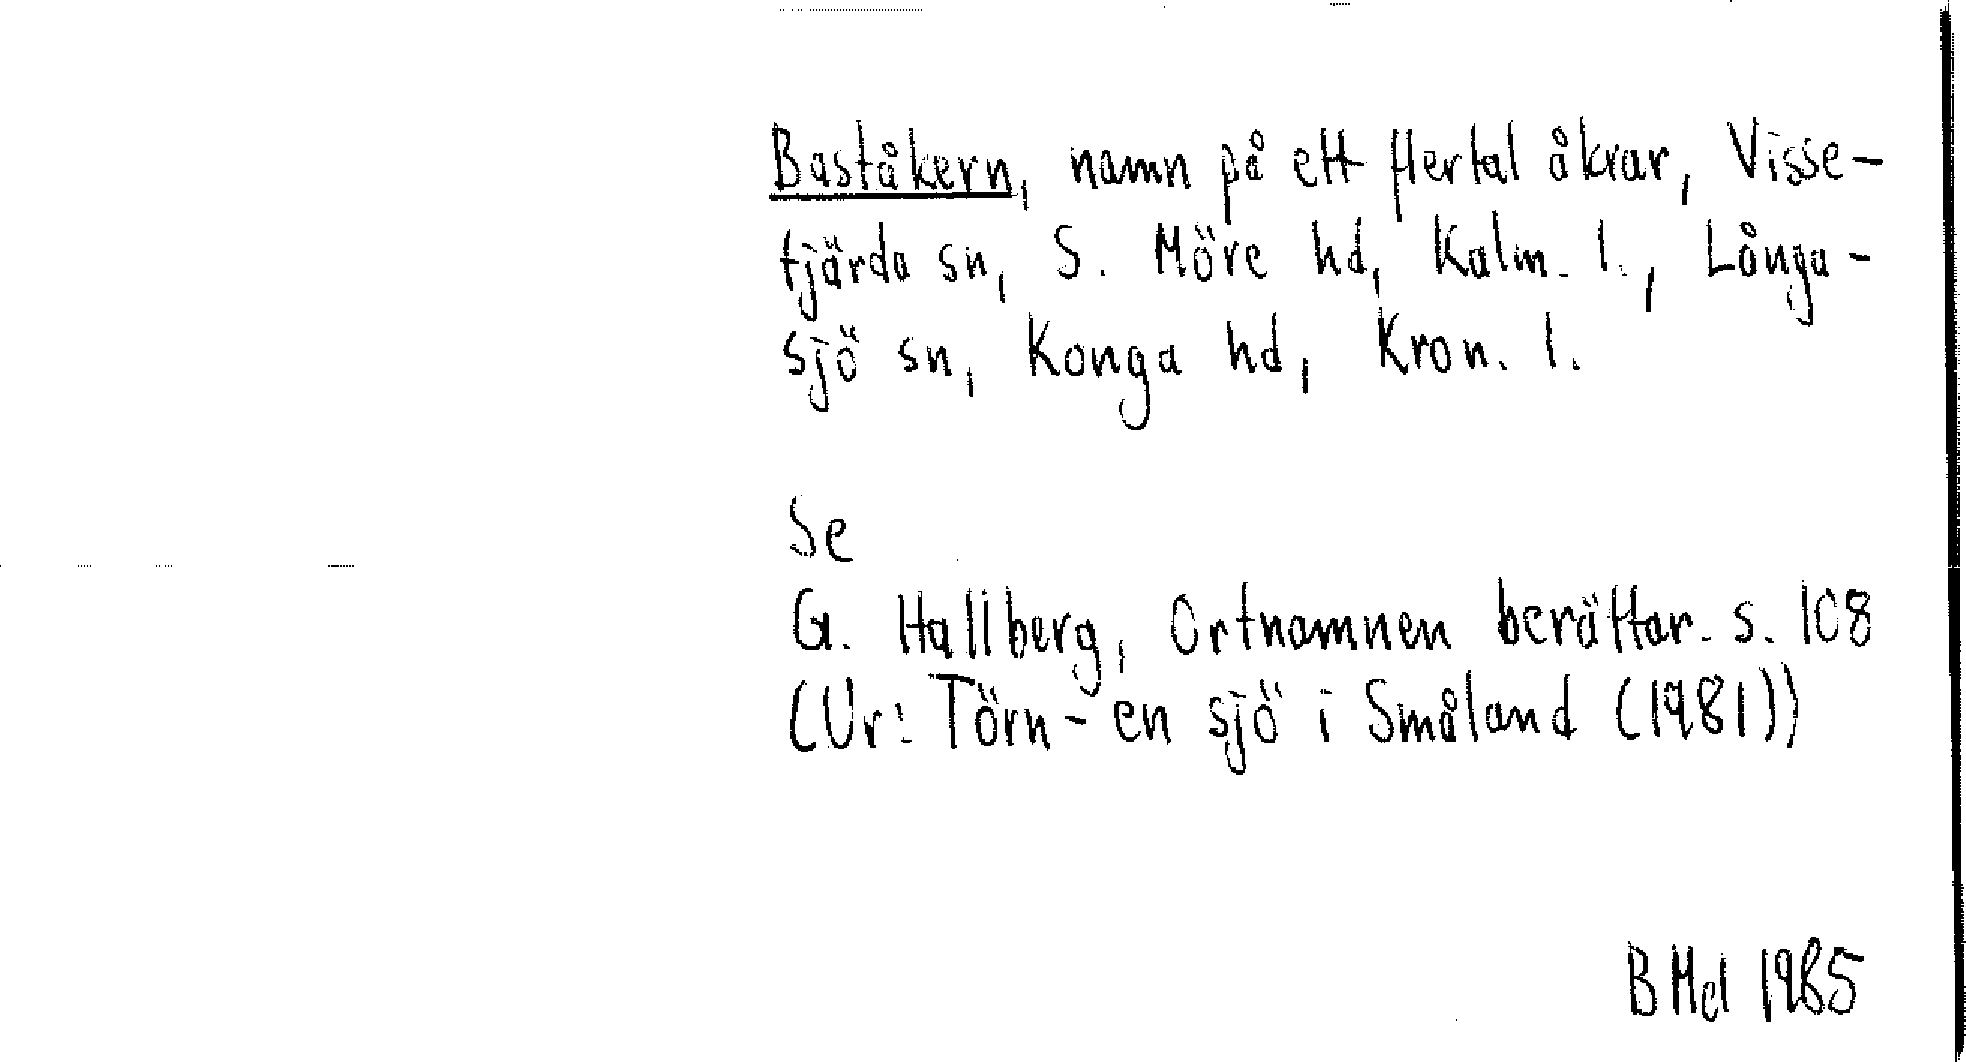 Baståkern, namn på ett flertal åkrar, Visse-
fjärda sn, S. Möre hd, Kalm. l., Långa-
sjö sn, Konga hd, Kron. l.
Se
G. Hallberg, Ortnamnen berättar. s. 108
(Ur: Törn - en sjö i Småland (1981))
B Hel 1985